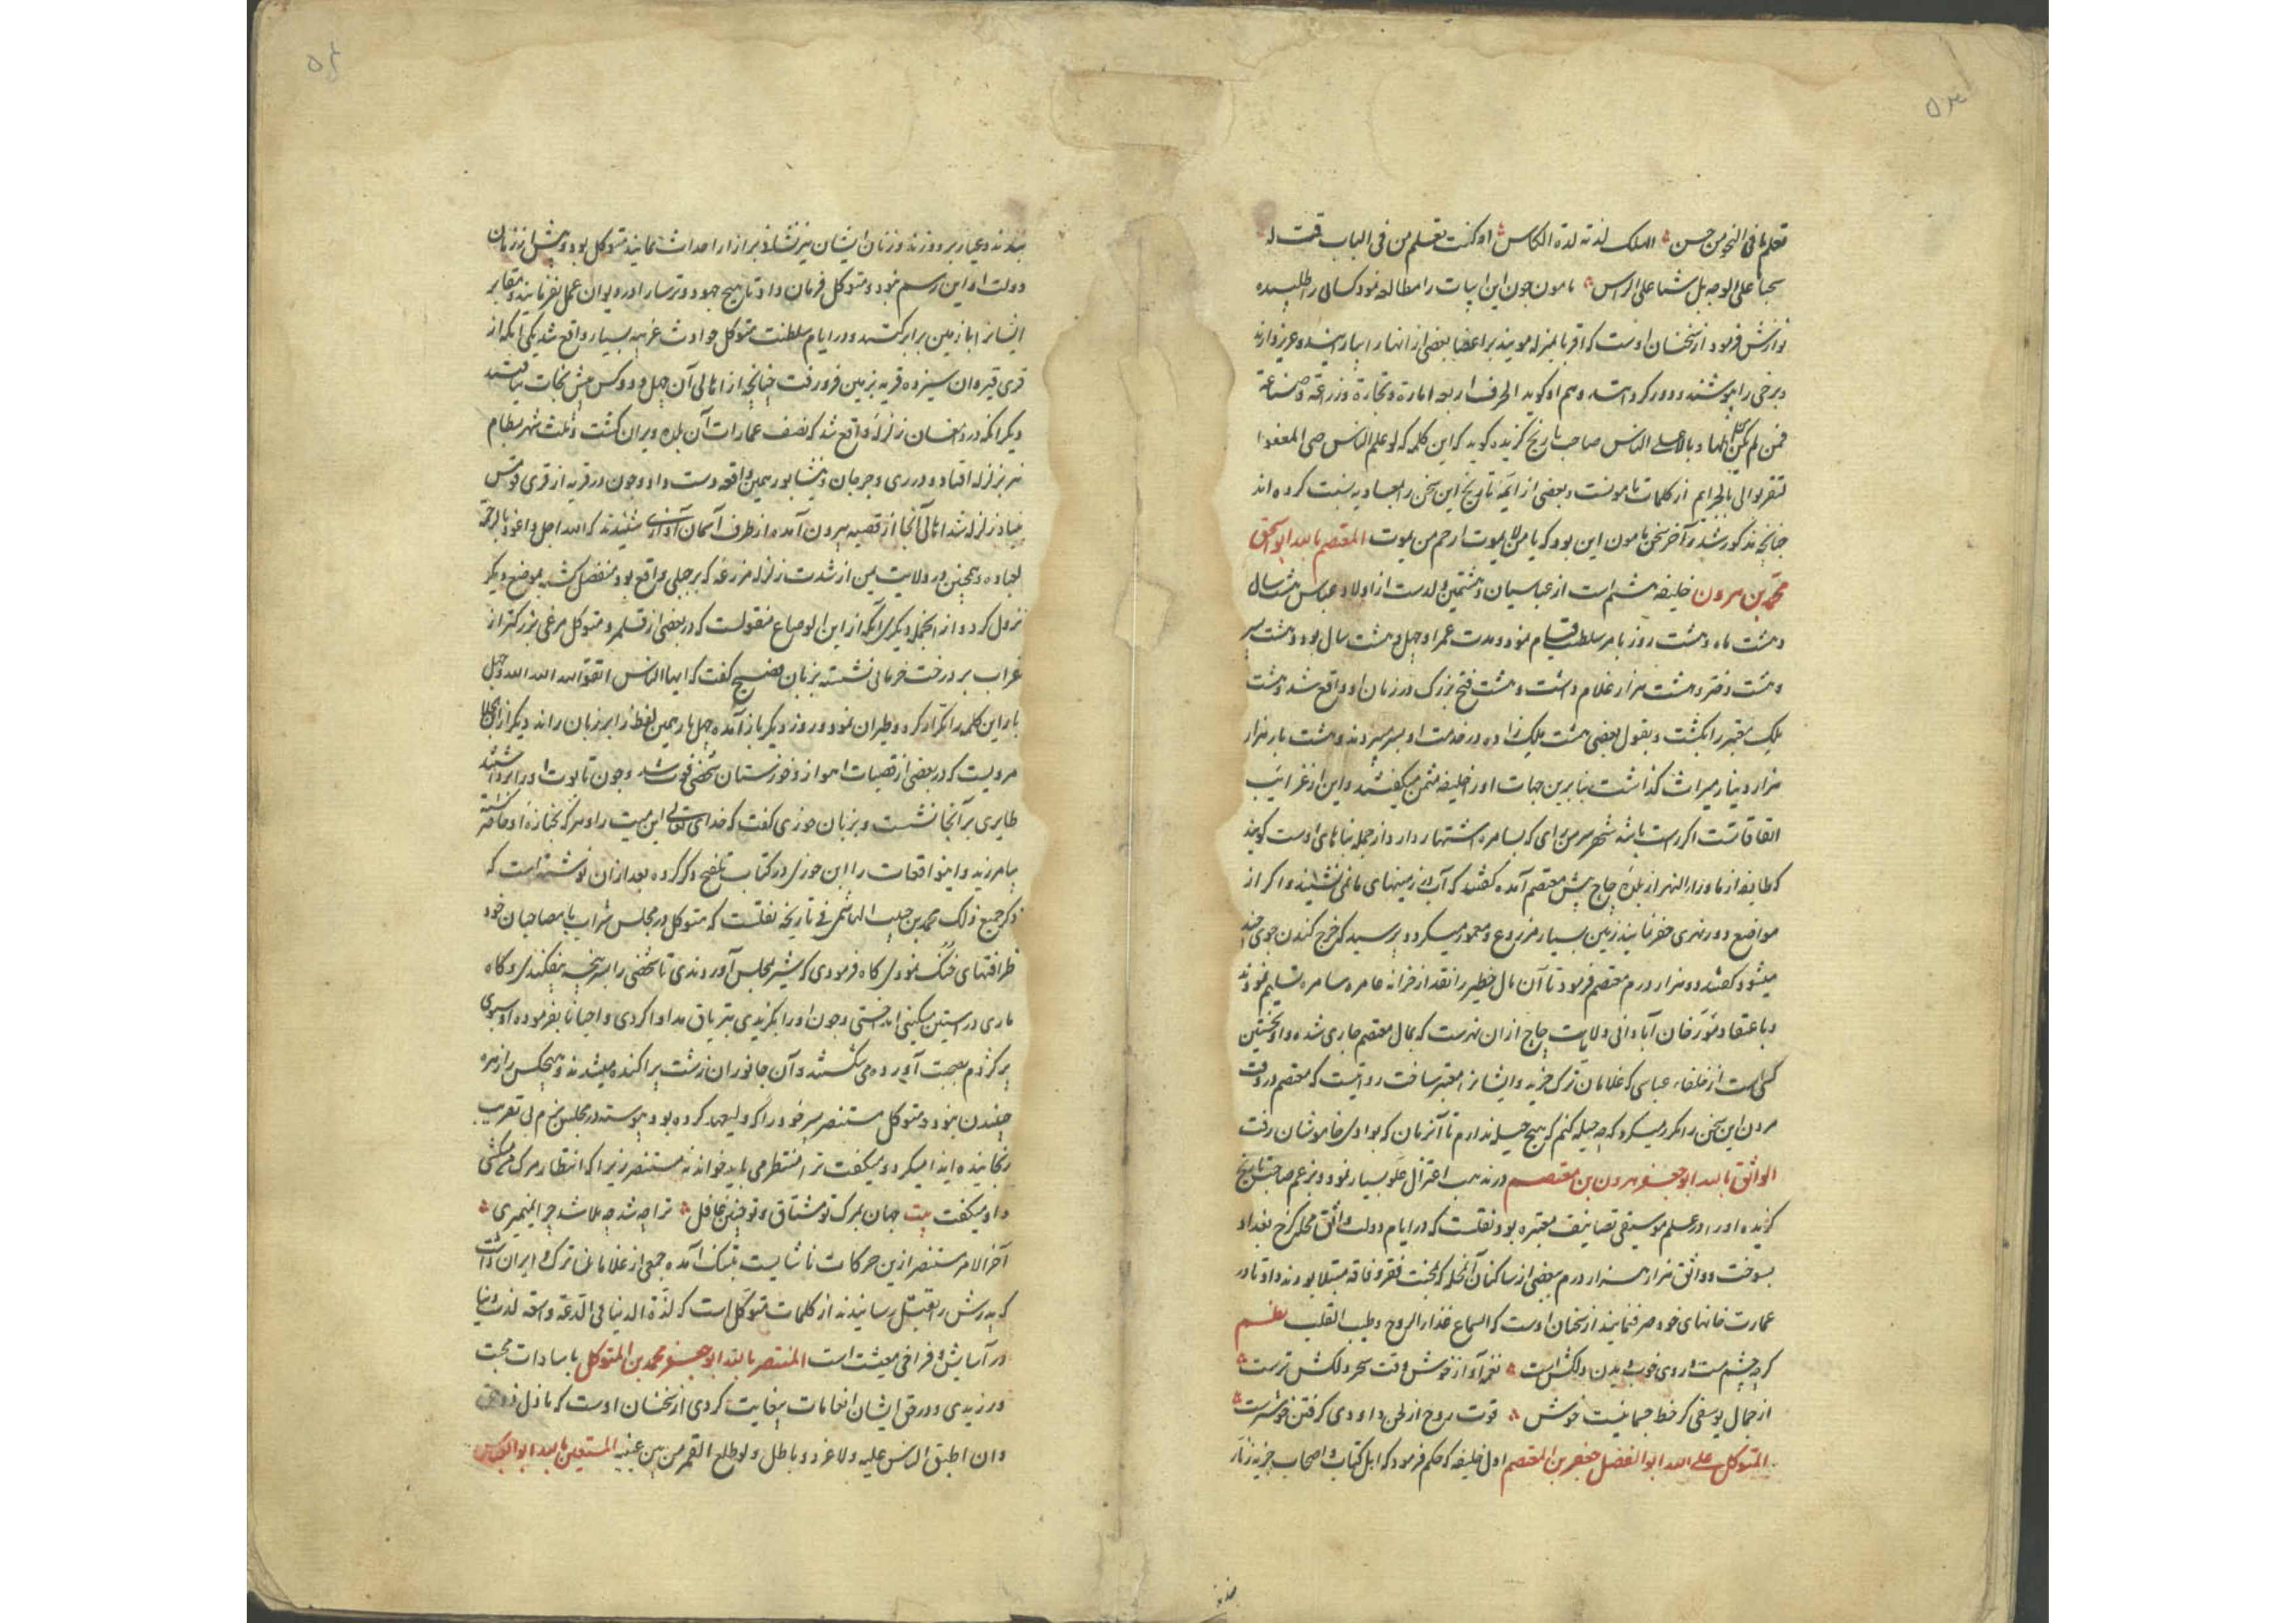 ۵۳
تعلم ما فی النحو من حسن الملک لذته لذة الکاس او کنت تعلم من فی الباب قمت له
سجبا علی الوجه بل مشیا علی الراس مامون چون این ابیات را مطالعه نمود کسائی را طلبیده
نوازش فرمود از سخنان اوست که اقربا بمنزله مویند بر اعضا بعضی از انها را بباید و عزیز دارند
و برخی را بپوشند و دور کرد و هم او کوید الحرف اربعه امارة و تجارة و زراعة و صناعة
فمن لم یکن الها و بالا علی الناس صاحب تاریخ کزیده کوید که این کلمه که لو علم الناس حبی المعفو
لتقربوا الی بالجرایم از کلمات مامونست و بعضی از ایمه تاریخ این سخن را بمعاویه نسبت کرده اند
چنانچه مذکور شد و آخر سخن مامون این بود که یا من لا یموت ارحم من یموت المعتصم بالله ابو اسحق
محمد بن هرون خلیفه هشتم است از عباسیان و هشتمین ولدست از اولاد عباس هشت سال
و هشت ماه و هشت روز بامر سلطنت قیام نمود و مدت عمر او چهل و هشت سال بود و هشت پسر
و هشت دختر و هشت هزار غلام داشت و هشت فتح بزرک در زمان او واقع شد و هشت
ملک معتبر را بکشت و بقول بعضی هشت ملک زاده در خدمت او بسر میبردند و هشت بار هزار
هزار دینار میراث کذاشت بنابرین جهات او را خلیفه مثمن میکفتند و این از غرایب
اتفاقاتست اکر راست باشد شهر سر من رای که بسامره اشتهار دارد از جمله بناهای اوست کویند
که طایفه از ماوراء النهر از بلده چاچ پیش معتصم آمده کفتند که آب در زمینهای ما نمی نشیند و اکر از
مواضع دور نهری حفر نمایند زمین بسیار مزروع و معمور میکردد پرسید که خرج کندن جوی چند
میشود کفتند دو هزار درم معتصم فرمود تا آن مال خطیر را نقد از خزانه عامره سامره تسلیم نمودند
و باعتقاد مورخان آبادانی ولایت چاچ از ان نهرست که بمال معتصم جاری شده و او نخستین
کسی است از خلفاء عباسی که غلامان ترک خرید و ایشانرا معتبر ساخت روایتست که معتصم در وقت
مردن این سخن را مکرر میکرد که چه حیله کنم که هیچ حیله ندارم تا آنزمان که بوادی خاموشان رفت
الواثق بالله ابو جعفر هرون بن معتصم در مذهب اعتزال غلو بسیار نمود و بزعم صاحب تاریخ
کزیده او را در علم موسیقی تصانیف معتبره بود نقلست که در ایام دولت واثق محله کرخ بغداد
بسوخت و واثق هزار هزار درم ببعضی از ساکنان آن محله که بمحنت فقر و فاقه مبتلا بودند داد تا در
عمارت خانهای خود صرف نمایند از سخنان اوست که السماع غذاء الروح و طیب القلب نظم
کرچه چشم مست و روی خوب دیدن دلکش است نغمه آواز خوش وقت سحر دلکش ترست
از جمال یوسفی کر خط جسمانیست خوش قوت روح از لحن داودی کرفتن خوشترست
المتوکل علی الله ابو الفضل جعفر بن المعتصم اول خلیفه که حکم فرمود که اهل کتاب و اصحاب جزیه زنار
۵۴
بندند و غیار بر دوزند و زنان ایشان نیز نشان بر ازار احداث نمایند متوکل بود و پیش از زمان
دولت او این رسم نبود و متوکل فرمان داد تا هیچ جهود و ترسا را در دیوان عمل نفرمایند و مقابر
ایشانرا با زمین برابر کنند و در ایام سلطنت متوکل حوادث غریبه بسیار واقع شد یکی آنکه از
قری قیروان سیزده قریه بزمین فرو رفت چنانچه از اهالی آن چهل و دو کس بیش نجات نیافتند
دیکر آنکه در دامغان زلزله واقع شد که نصف عمارات آن بلده ویران کشت و ثلث شهر بسطام
نیز بزلزله افتاد و در ری و جرجان و نیشابور همین واقعه دست داد و چون در قریه از قری قومس
بنیاد زلزله شد اهالی آنجا از قصبه بیرون آمده از طرف آسمان آوازی شنیدند که الله اجل و اعود بالرحمة
لعباده و همچنین در ولایت یمن از شدت زلزله مزرعه که بر جبلی واقع بود منفصل کشته بموضع دیکر
نزول کرد و از انجمله دیکر آنکه از ابن الوضاع منقولست که در بعضی از قلمرو متوکل مرغی بزرکتر از
غراب بر درخت خرمائی نشسته بزبان فصیح کفت که ایها الناس اتقوا الله الله الله و چهل
بار این کلمه را تکرار کرده و طیران نمود و روز دیکر باز آمده چهل بار همین لفظ را بر زبان راند دیکر از انجمله
مرویست که در بعضی از قصبات اهواز و خوزستان شخصی فوت شد و چون تابوت او را برداشتند
طایری بر آنجا نشست و بزبان خوزی کفت که خدای تعالی این میت را و هر که بجنازه او حاضر کشته
بیامرزید و اینواقعات را ابن جوزی در کتاب تلقیح ذکر کرده بعد از ان نوشته است که
ذکر جمیع ذلک محمد بن حبیب الهاشمی فی تاریخه نقلست که متوکل در مجلس شراب با مصاحبان خود
ظرافتهای خنک نمودی کاه فرمودی که شیر بمجلس آوردندی تا شخصی را بسر پنجه بیفکندی و کاه
ماری در آستین مسکینی انداختی و چون او را بکزیدی بتریاق مداوا کردی و احیانا بفرموده او سبوی
پر کژدم بصحبت آورده می شکستند و آن جانوران زشت پراکنده میشدند و هیچکس را زهره
جنبیدن نبود و متوکل مستنصر پسر خود را که ولیعهد کرده بود پیوسته در مجلس بزم بی تقریب
رنجانیده ایذا میکرد و میکفت ترا منتظر می باید خواند نه مستنصر زیرا که انتظار مرک من میکشی
و او میکفت بیت جهان بمرک تو مشتاق و تو چنین غافل ترا چه شد چه بلا شد چرا نمیمیری
آخر الامر مستنصر ازین حرکات ناشایست بتنک آمده جمعی از غلامان ترک را بران داشت
که پدرش را بقتل رسانیدند از کلمات متوکل است که لذة الدنیا فی الدعة و السعة لذت دنیا
در آسایش و فراخی معیشت است المنتصر بالله ابو جعفر محمد بن المتوکل با سادات محبت
ورزیدی و در حق ایشان انعامات بیغایت کردی از سخنان اوست که ما ذل ذو حق
وان اطبق الناس علیه ولا عز ذو باطل ولو طلع القمر من بین عینیه المستعین بالله ابو العباس